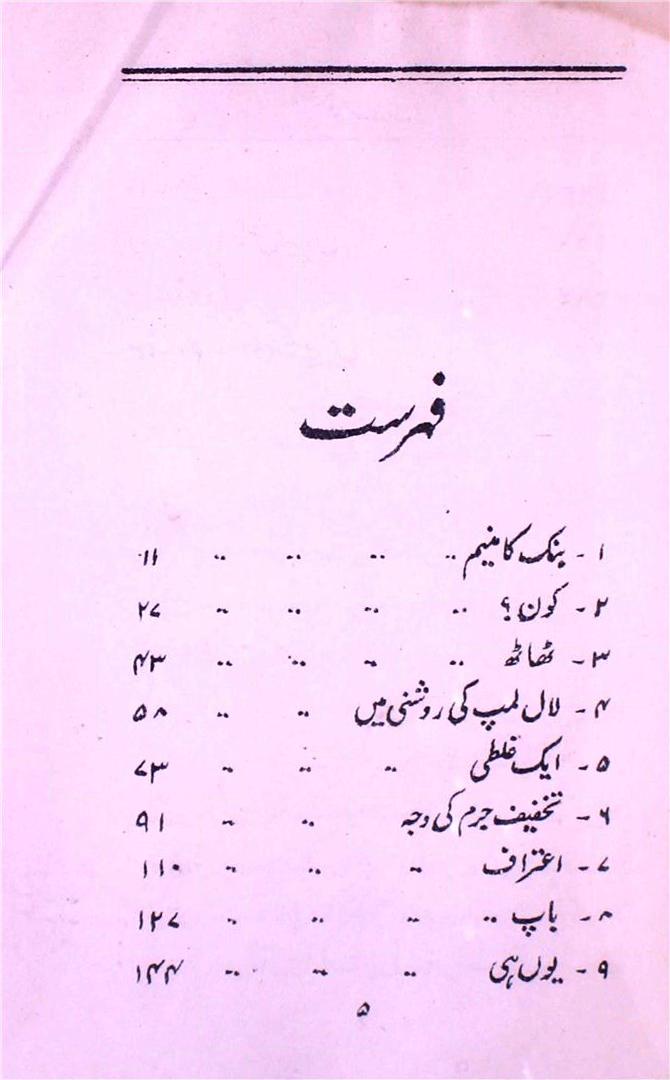 فہرست
۱ - بنک کا منیم .. .. .. .. ۱۱
۲ - کون؟ .. .. .. .. ۲۷
۳ - ٹھاٹھ .. .. .. .. ۴۳
۴ - لال لمپ کی روشنی میں .. .. ۵۸
۵ - ایک غلطی .. .. .. ۷۳
۶ - تخفیف جرم کی وجہ .. .. ۹۱
۷ - اعتراف .. .. .. ۱۱۰
۸ - باپ .. .. .. .. ۱۲۷
۹ - یوں ہی .. .. .. ۱۴۴
۵